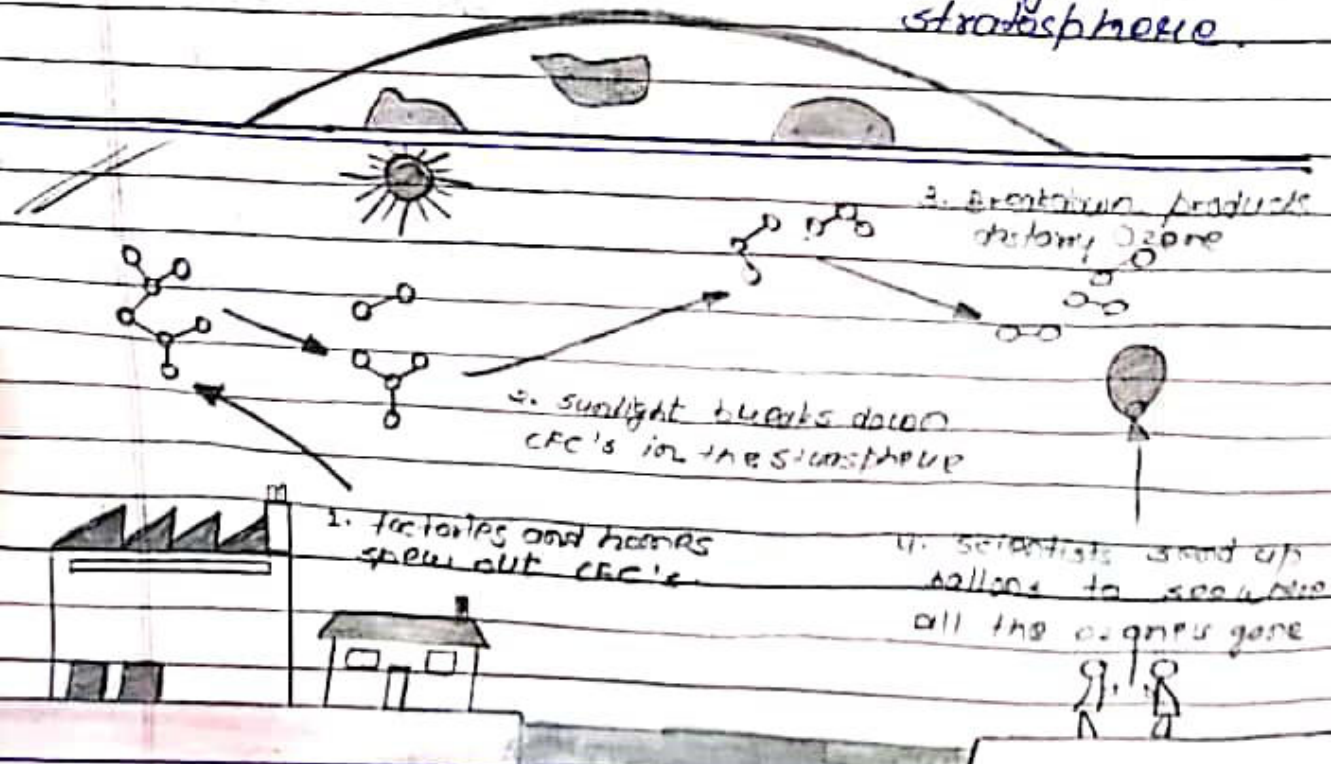 stratosphere.
3. Breakdown products
destory Ozone
2. sunlight breaks down
CFC's in the
1. factories and homes
spew out CFC's.
4. scientists send up
ballons to see
all the gone